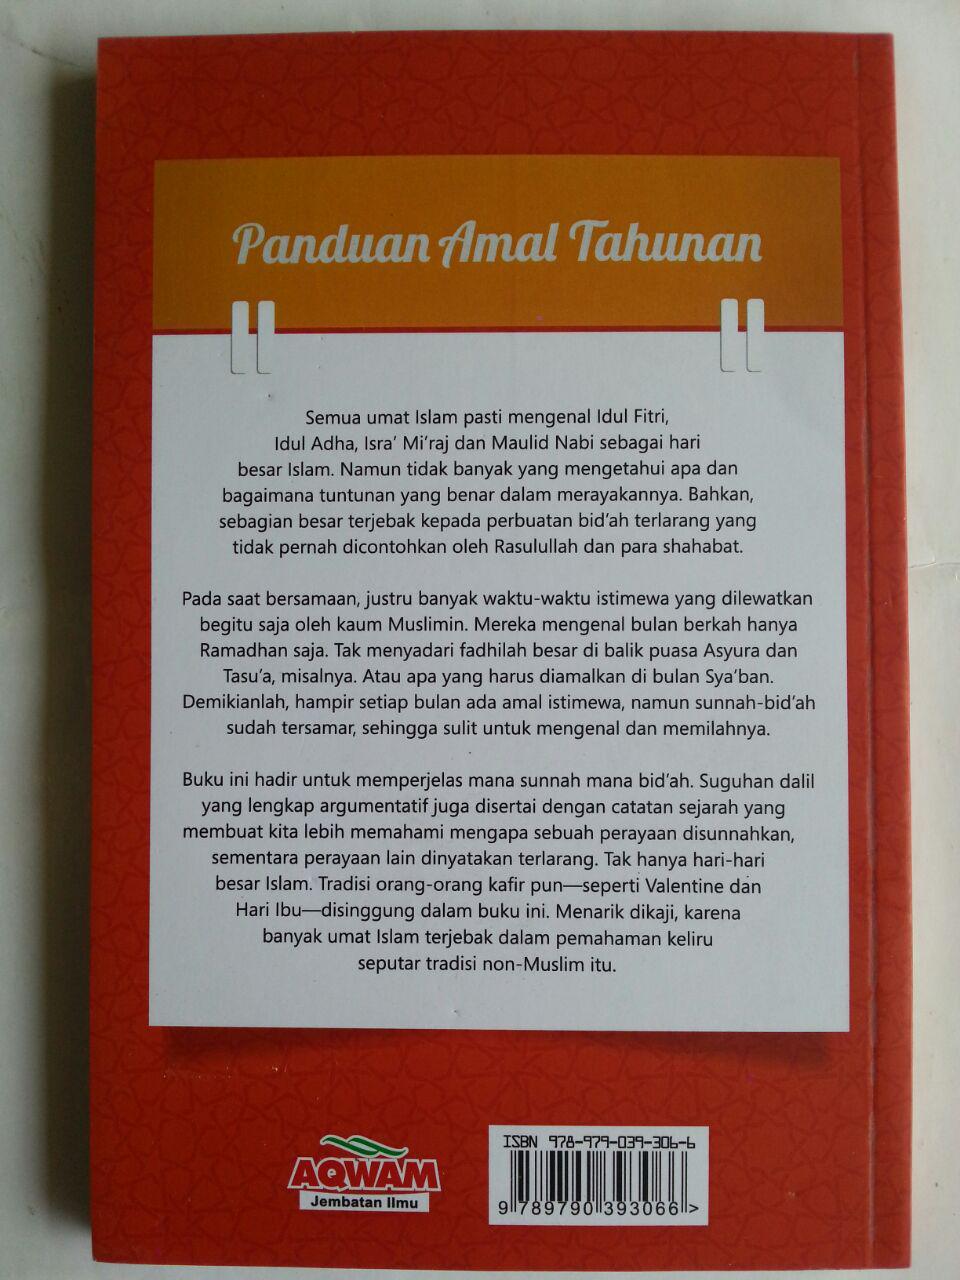 Panduan Amal Tahunan
Semua umat Islam pasti mengenal Idul Fitri,
Idul Adha, Isra' Mi'raj dan Maulid Nabi sebagai hari
besar Islam. Namun tidak banyak yang mengetahui apa dan
bagaimana tuntunan yang benar dalam merayakannya. Bahkan,
sebagian besar terjebak kepada perbuatan bid'ah terlarang yang
tidak pernah dicontohkan oleh Rasulullah dan para shahabat.
Pada saat bersamaan, justru banyak waktu-waktu istimewa yang dilewatkan
begitu saja oleh kaum Muslimin. Mereka mengenal bulan berkah hanya
Ramadhan saja. Tak menyadari fadhilah besar di balik puasa Asyura dan
Tasu'a, misalnya. Atau apa yang harus diamalkan di bulan Sya'ban.
Demikianlah, hampir setiap bulan ada amal istimewa, namun sunnah-bid'ah
sudah tersamar, sehingga sulit untuk mengenal dan memilahnya.
Buku ini hadir untuk memperjelas mana sunnah mana bid'ah. Suguhan dalil
yang lengkap argumentatif juga disertai dengan catatan sejarah yang
membuat kita lebih memahami mengapa sebuah perayaan disunnahkan,
sementara perayaan lain dinyatakan terlarang. Tak hanya hari-hari
besar Islam. Tradisi orang-orang kafir pun—seperti Valentine dan
Hari Ibu—disinggung dalam buku ini. Menarik dikaji, karena
banyak umat Islam terjebak dalam pemahaman keliru
seputar tradisi non-Muslim itu.
AQWAM
Jembatan Ilmu
ISBN 978-979-039-306-6
9 789790 393066 >